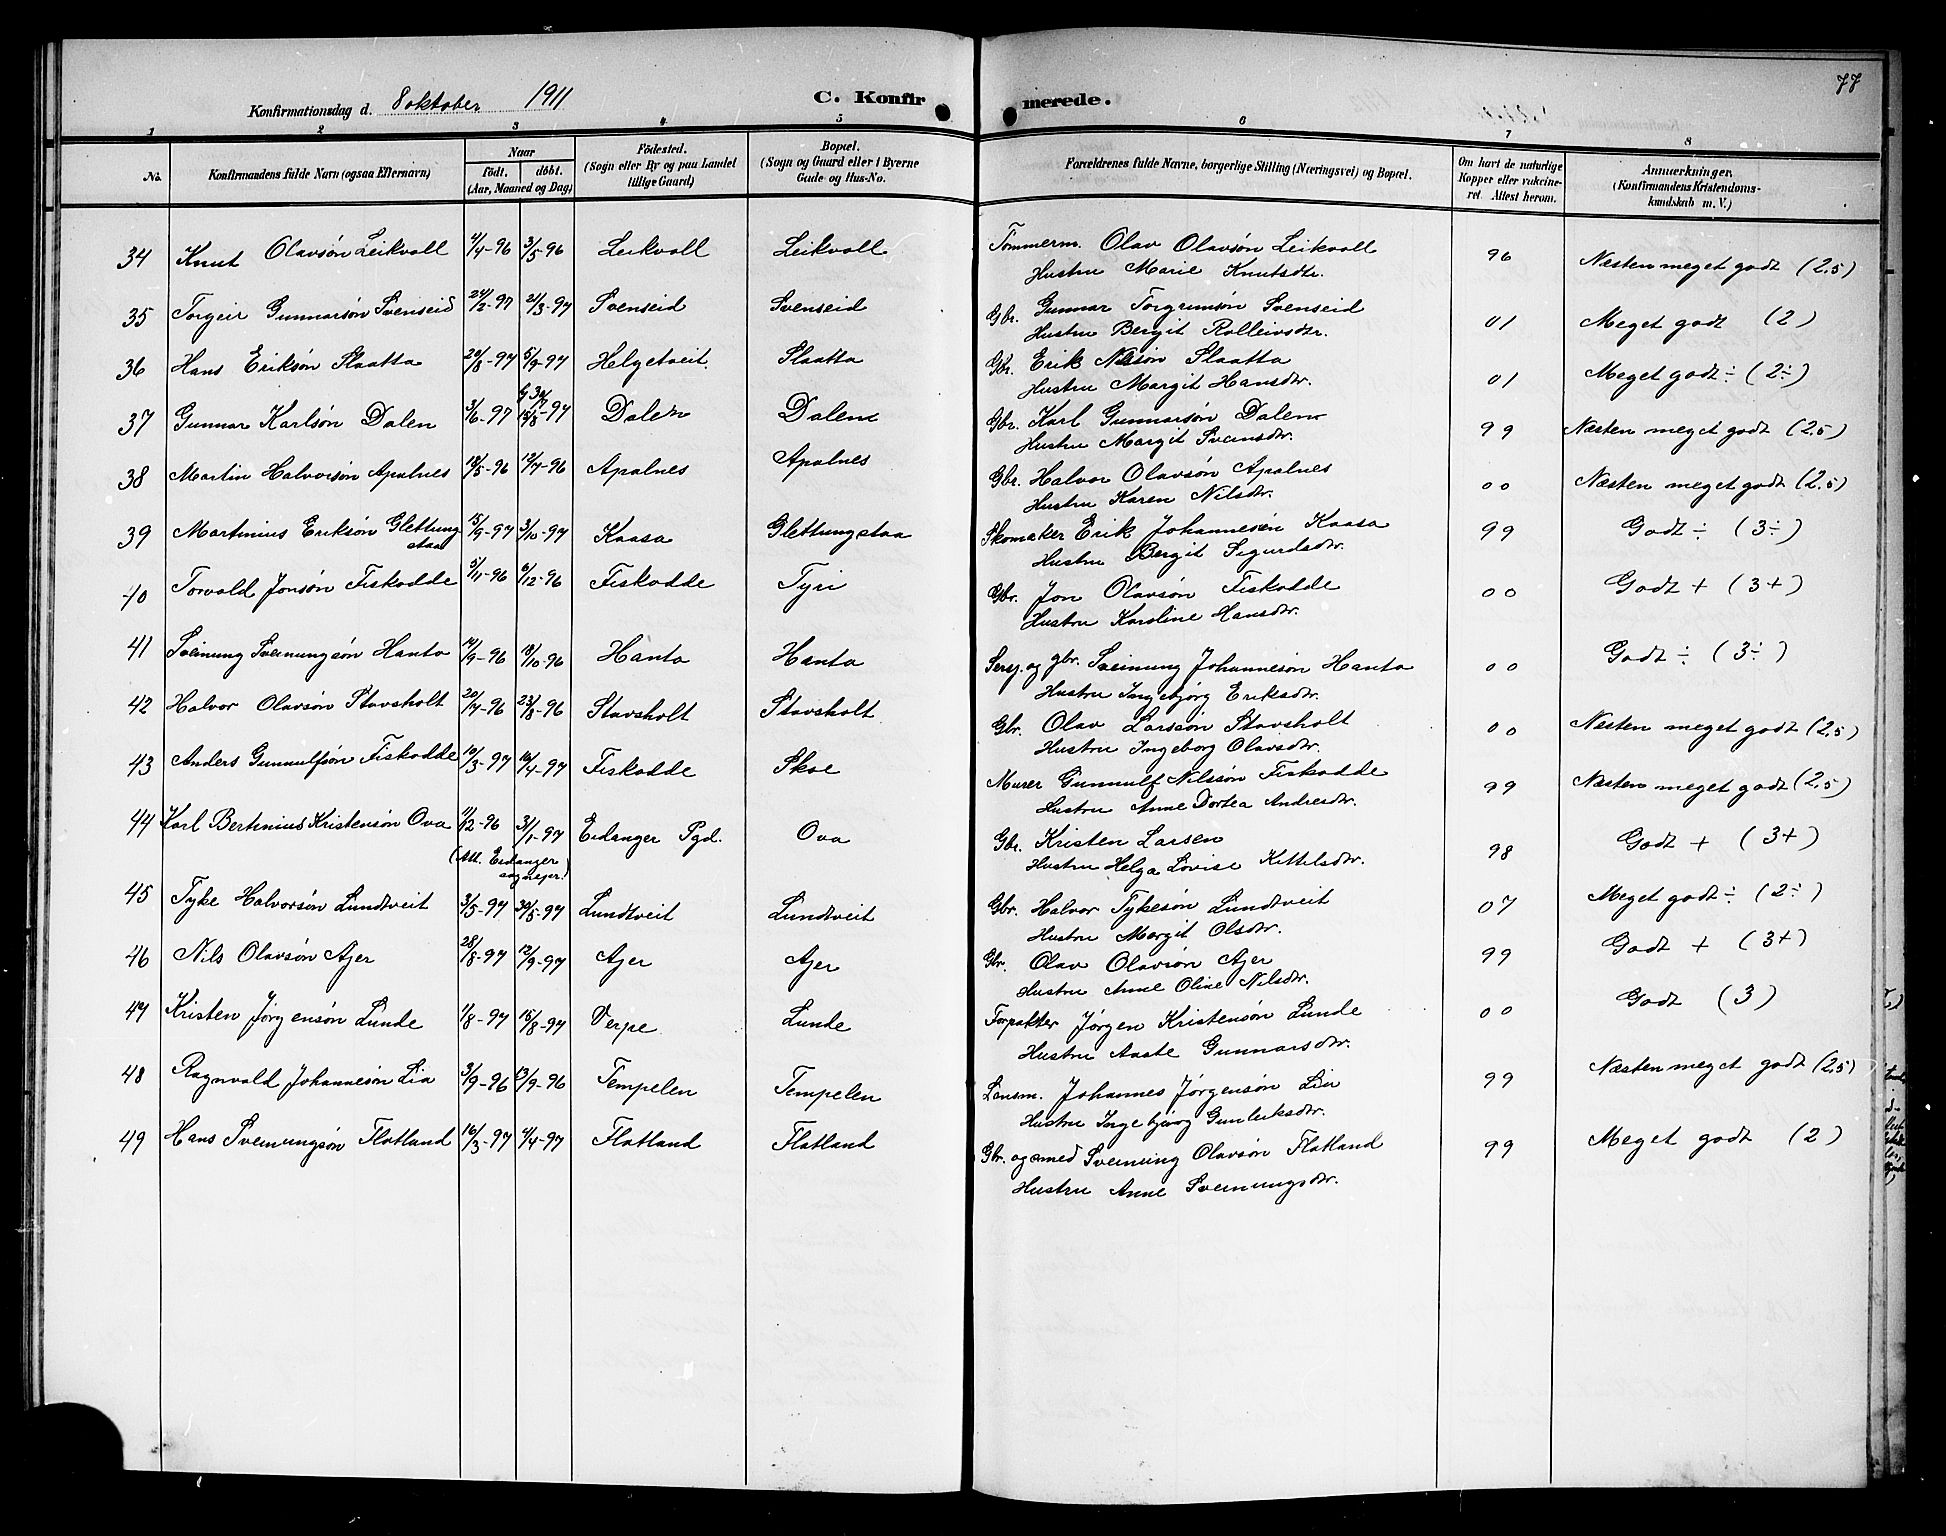 77
Konfirmationsdag d. 8 oktober 1911
C. Konfirmerede.
1 2 3 4 5 6 7 8
No. Konfirmandens fulde Navn (ogsaa Efternavn)
Naar födt. döbt. (Aar, Maaned og Dag)
Födested. (Sogn eller By og paa Landet tillige Gaard)
Bopæl. (Sogn og Gaard eller i Byerne Gade og Hus-No.
Forældrenes fulde Navne, borgerlige Stilling (Næringsvei) og Bopæl.
Om havt de naturlige Kopper eller vakcineret. Attest herom.
Anmærkninger. (Konfirmandens Kristendomskundskab m. V.)
34 Knut Olavsön Leikvoll 11/4-96 3/5-96 Leikvoll Leikvoll Tömmerm. Olav Olavsön Leikvoll 96 Næsten meget godt (2,5)
Hustru Marie Knutsdtr.
35 Torgeir Gunnarsön Svenseid 24/2-97 21/3-97 Svenseid Svenseid Gbr. Gunnar Torgrimsön Svenseid 01 Meget godt (2)
Hustru Bergit Rolleivsdtr.
36 Hans Eriksön Slaatta 20/8-97 5/9-97 Helgetveit Slaatta Gbr. Erik Nilsön Slaatta 01 Meget godt ÷ (2÷)
Hustru Margit Hansdtr.
37 Gunnar Karlsön Dalen 3/6-97 15/8-97 Dalen Dalen Gbr. Karl Gunnarsön Dalen 99 Næsten meget godt (2,5)
Hustru Margit Svensdtr.
38 Martin Halvorsön Apalnes 18/5-96 12/7-96 Apalnes Apalnes Gbr. Halvor Olavsön Apalnes 00 Næsten meget godt (2,5)
Hustru Karen Nilsdtr.
39 Martinius Eriksön Glettungstaa 15/9-97 3/10-97 Kaasa Glettungstaa Skomaker Erik Johannesön Kaasa 99 Godt ÷ (3÷)
Hustru Bergit Sigurdsdtr.
40 Torvald Jonsön Fiskodde 5/11-96 6/12-96 Fiskodde Tyri Gbr. Jon Olavsön Fiskodde 00 Godt + (3+)
Hustru Karoline Hansdtr.
41 Sveinung Sveinungsön Hanto 14/9-96 18/10-96 Hanto Hanto Sersj. og gbr. Sveinung Johannesön Hanto 00 Godt ÷ (3÷)
Hustru Ingebjörg Eriksdtr.
42 Halvor Olavsön Stavsholt 20/7-96 23/8-96 Stavsholt Stavsholt Gbr. Olav Larssön Stavsholt 00 Næsten meget godt (2,5)
Hustru Ingeborg Olavsdtr.
43 Anders Gunnulfsön Fiskodde 10/3-97 16/4-97 Fiskodde Skoe Murer Gunnulf Nilssön Fiskodde 99 Næsten meget godt (2,5)
Hustru Anne Dortea Andresdtr.
44 Karl Bertinius Kristensön Ova 11/12-96 31/1-97 Eidanger Pgd. Ova Gbr. Kristen Larsen 98 Godt + (3+)
(Att. Eidanger sognepr.) Hustru Helga Lovise Kittelsdtr.
45 Tyke Halvorsön Lundtveit 3/5-97 30/5-97 Lundtveit Lundtveit Gbr. Halvor Tykesön Lundtveit 07 Meget godt ÷ (2÷)
Hustru Margit Olsdtr.
46 Nils Olavsön Ajer 28/8-97 12/9-97 Ajer Ajer Gbr. Olav Olavsön Ajer 99 Godt + (3+)
Hustru Anne Oline Nilsdtr.
47 Kristen Jörgensön Lunde 1/8-97 15/8-97 Verpe Lunde Forpakter Jörgen Kristensön Lunde 00 Godt (3)
Hustru Aaste Gunnarsdtr.
48 Ragnvald Johannesön Lia 3/9-96 13/9-96 Tempelen Tempelen Lensm. Johannes Jörgensön Lia 99 Næsten meget godt (2,5)
Hustru Ingebjörg Gunleiksdtr.
49 Hans Sveinungsön Flatland 16/3-97 4/4-97 Flatland Flatland Gbr. og smed Sveinung Olavsön Flatland 99 Meget godt (2)
Hustru Anne Sveinungsdtr.